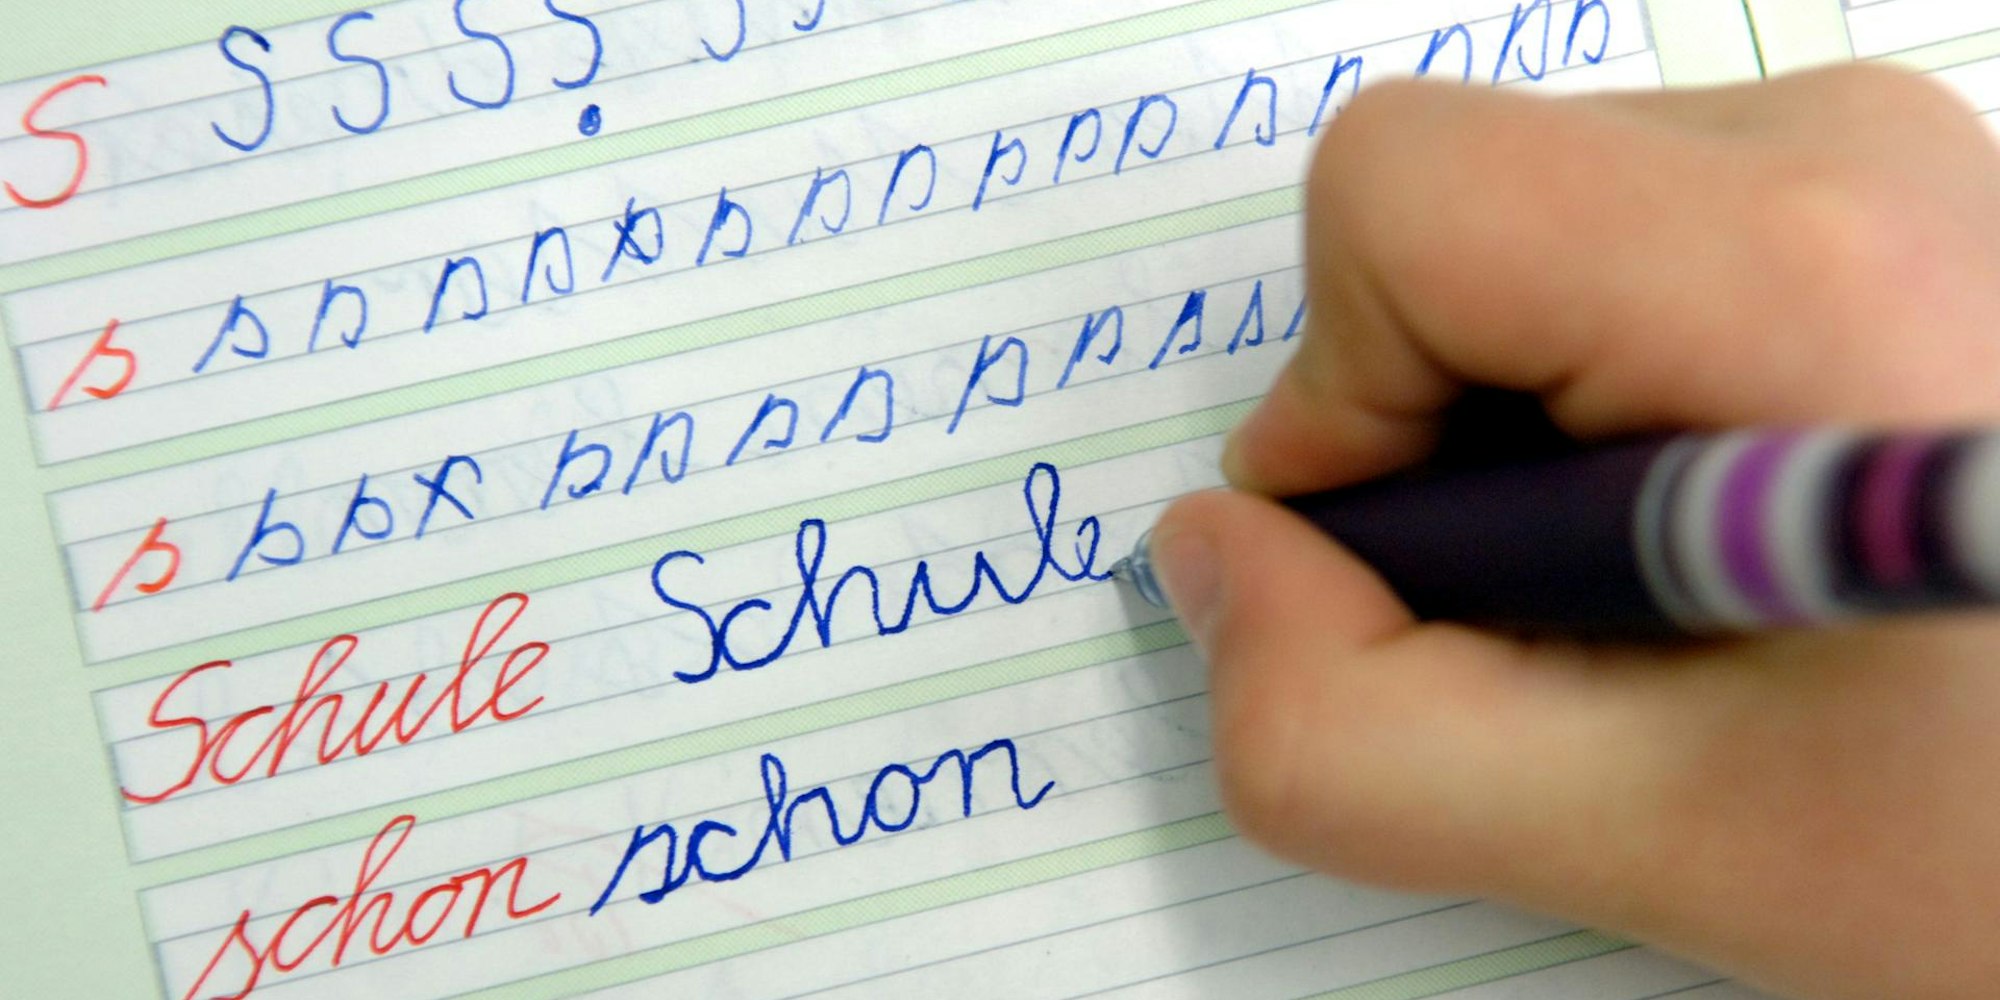 S S S S S
s s s s s s s s s s s s s s s s
s s s s s s s s s s s
Schule Schule
schon schon